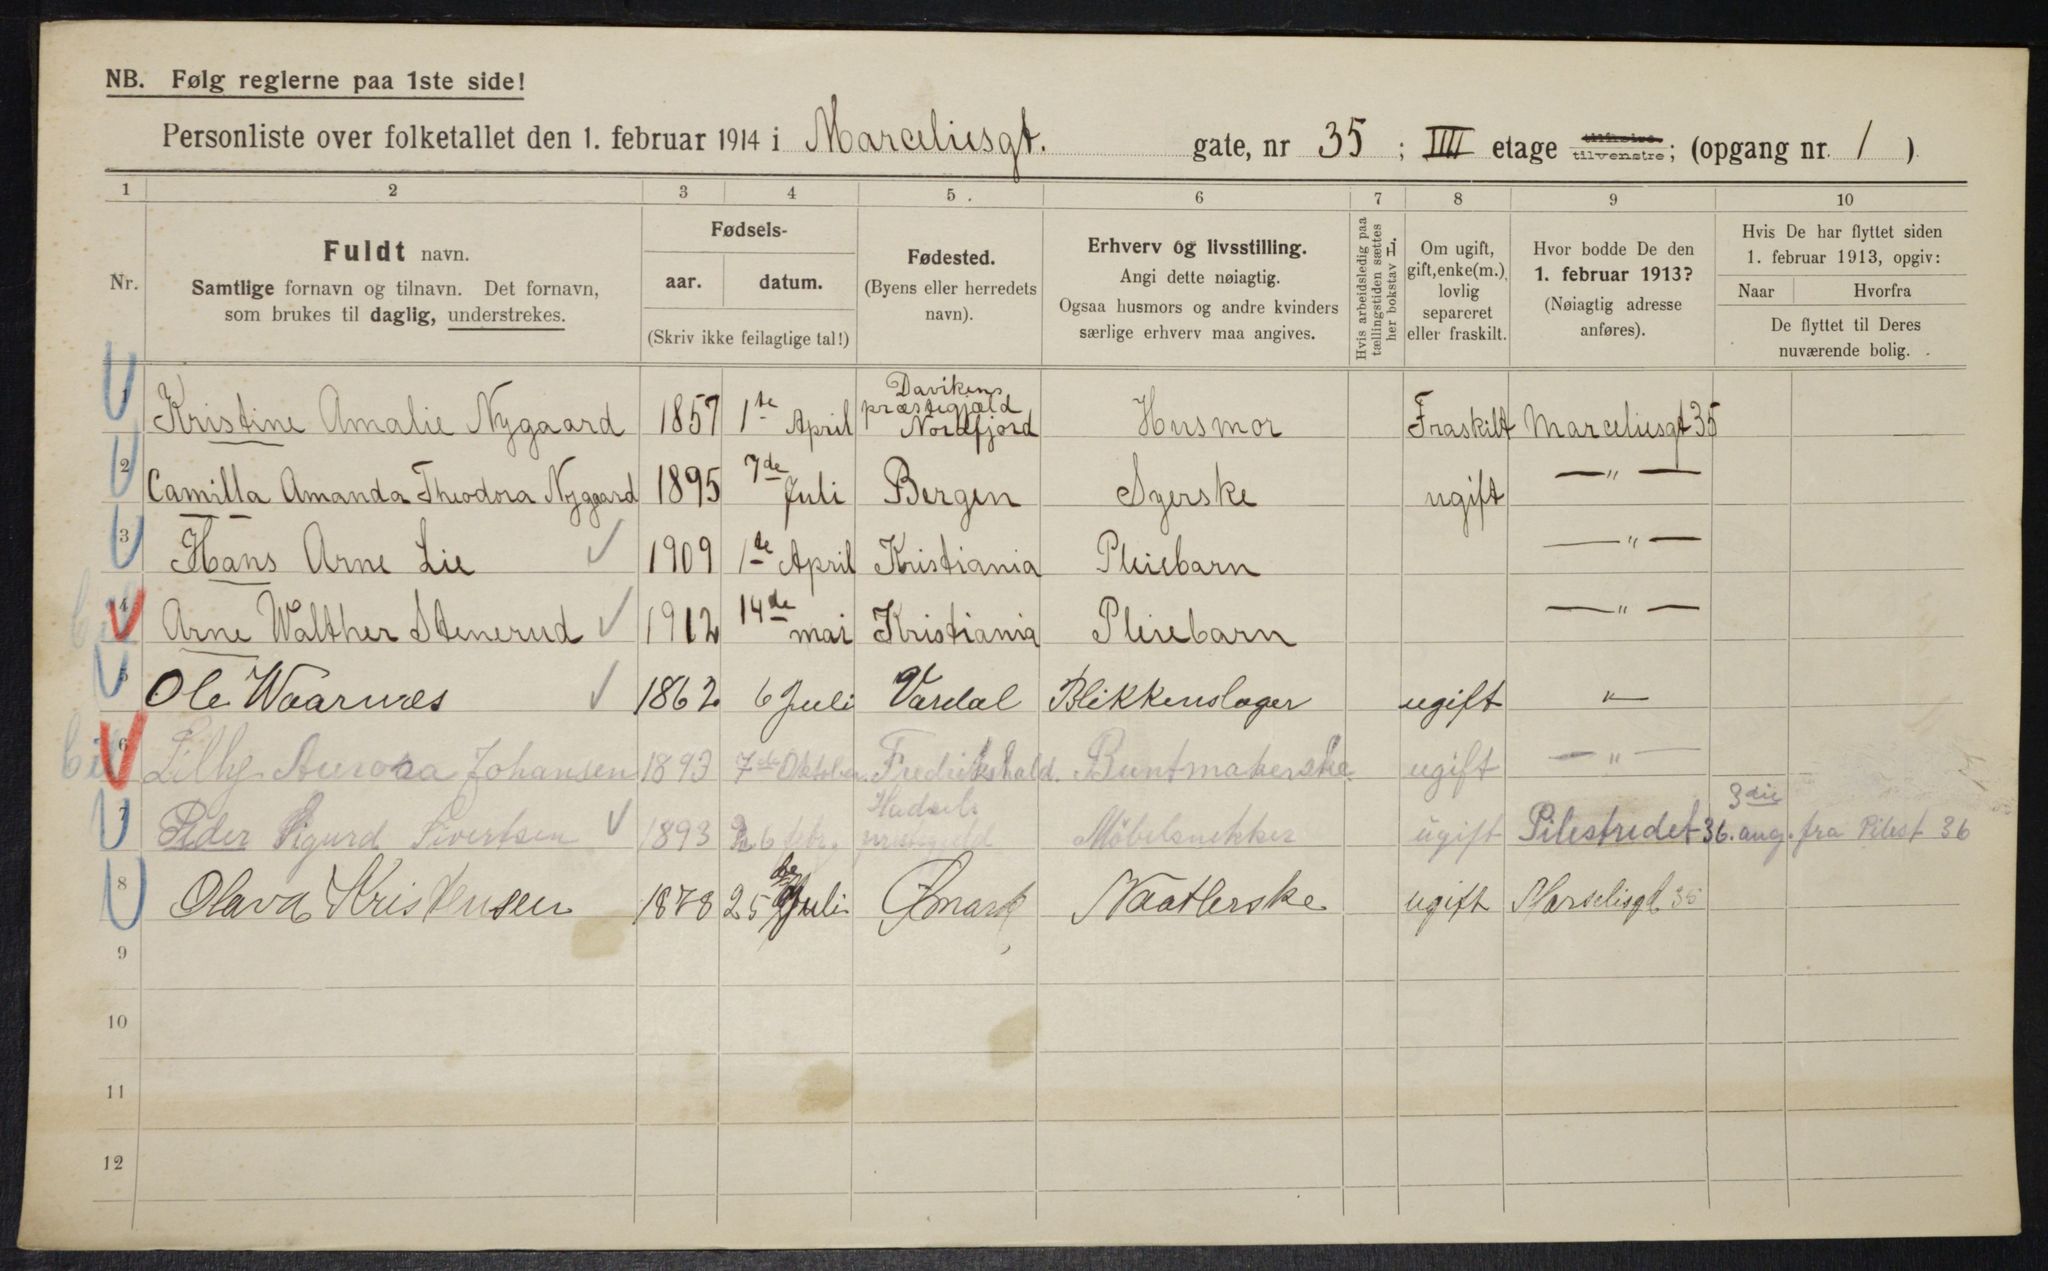 NB. Følg reglerne paa 1ste side!
Personliste over folketallet den 1. februar 1914 i Marceliusgt. gate, nr 35; IIII etage tilhøire tilvenstre; (opgang nr. 1)
1 2 3 4 5. 6 7 8 9 10
Nr.
Fuldt navn.
Samtlige fornavn og tilnavn. Det fornavn,
som brukes til daglig, understrekes.
Fødsels-
aar. datum.
(Skriv ikke feilagtige tal!)
Fødested.
(Byens eller herredets
navn).
Erhverv og livsstilling.
Angi dette nøiagtig.
Ogsaa husmors og andre kvinders
særlige erhverv maa angives.
Hvis arbeidsledig paa
tællingstiden sættes
her bokstav L.
Om ugift,
gift, enke(m.),
lovlig
separeret
eller fraskilt.
Hvor bodde De den
1. februar 1913?
(Nøiagtig adresse
anføres).
Hvis De har flyttet siden
1. februar 1913, opgiv:
Naar Hvorfra
De flyttet til Deres
nuværende bolig.
1 Kristine Amalie Nygaard 1857 1ste April Davikens præstegjæld Nordfjord Husmor Fraskilt Marceliusgt 35
2 Camilla Amanda Theodora Nygaard 1895 7de Juli Bergen Syerske ugift — " —
3 Hans Arne Lie 1909 1ste April Kristiania Pleiebarn — " —
4 Arne Walther Stenerud 1912 14de mai Kristiania Pleiebarn — " —
5 Ole Waarnæs 1862 6 Juli Vardal Blikkenslager ugift "
6 Lilly Aurora Johansen 1893 7de Oktober. Fredrikshald. Buntmakerske ugift — " —
7 Peder Sigurd Sivertsen 1893 26 febr. Hadsel Møbelsnekker ugift Pilestredet 36. 3die aug. fra Pilest 36
8 Olava Kristensen 1878 25 Juli Naatlerske ugift Marselisgd 35
9
10
11
12